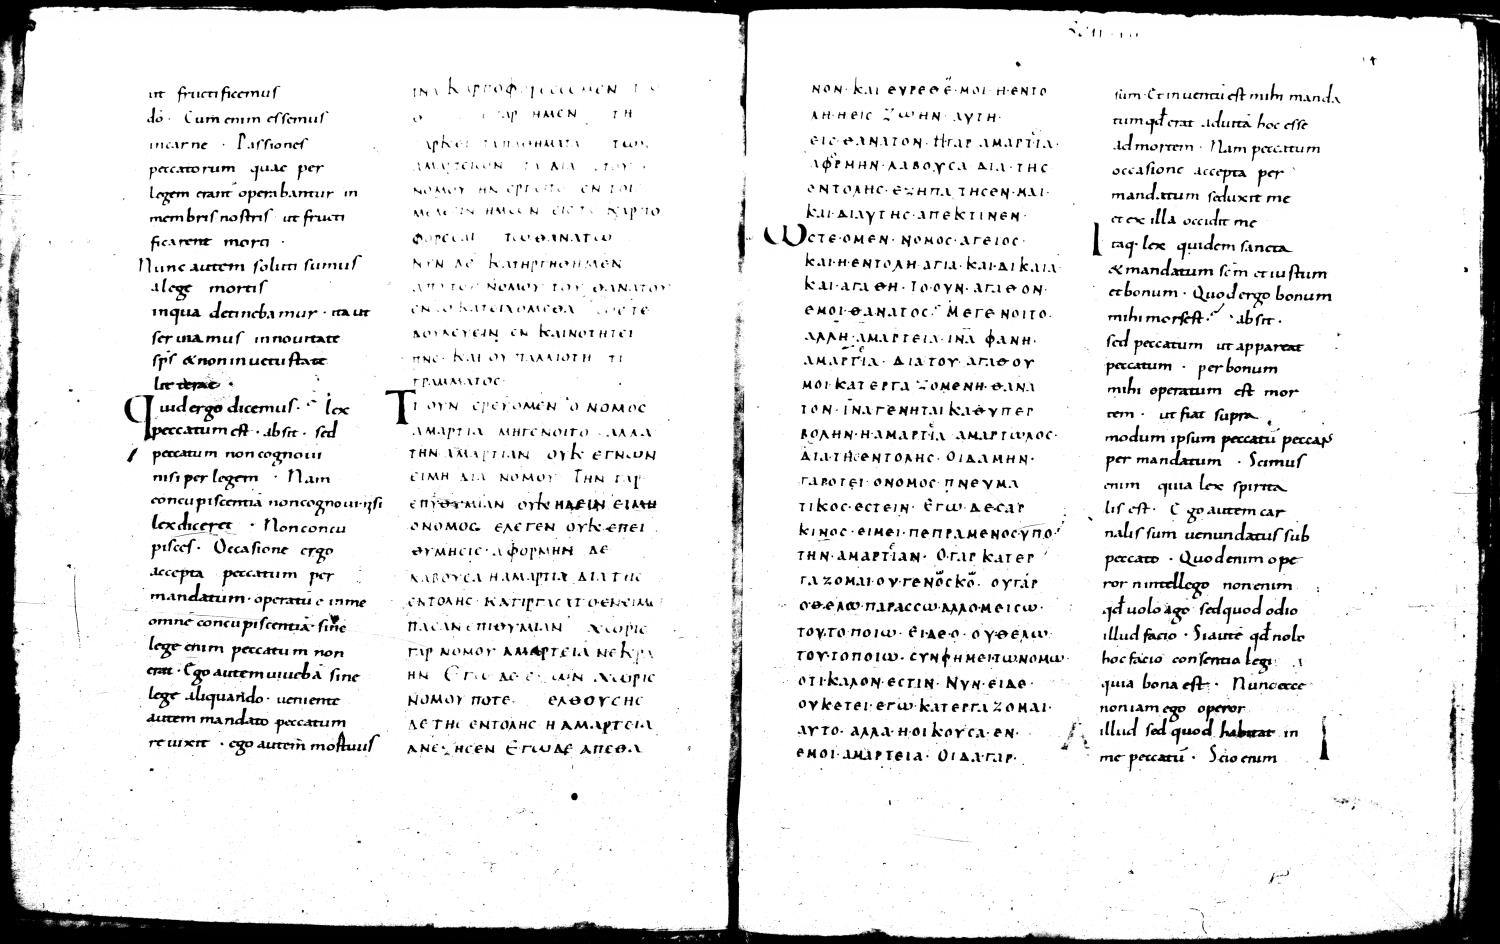 ut fructificemus
dō · Cum enim essemus
in carne · Passiones
peccatorum quae per
legem erant operabantur in
membris nostris ut fructi
ficarent morti ·
Nunc autem soluti sumus
a lege mortis
in qua detinebamur · ita ut
seruiamus in nouitate
sp̄s & non in uetustate
litterae ·
Quid ergo dicemus · lex
peccatum est · absit · sed
peccatum non cognoui
nisi per legem · Nam
concupiscentiā non cognoui · nisi
lex diceret · Non concu
pisces · Occasione ergo
accepta peccatum per
mandatum · operatū e in me
omnē concupiscentiā · sine
lege enim peccatum non
erat · Ego autem uiuebā sine
lege aliquando · ueniente
autem mandato peccatum
reuixit · ego autem mortuus
ΙΝΑ ΚΑΡΠΟΦ
ΓΑΡ ΗΜΕΝ ΤΗ
ΝΟΜΟΥ ΗΝ ΕΝ ΤΟΙ
ΦΟΡΕΣΑΙ ΤΩ ΘΑΝΑΤΩ
ΝΥΝ ΔΕ ΚΑΤΗΡΓΗΘΗΜΕΝ
ΝΟΜΟΥ ΤΟΥ ΘΑΝΑΤΟΥ
ΕΝ Ω ΚΑΤΕΙΧΟΜΕΘΑ ΩΣΤΕ
ΔΟΥΛΕΥΕΙΝ ΕΝ ΚΑΙΝΟΤΗΤΕΙ
ΠΝΣ · ΚΑΙ ΟΥ ΠΑΛΑΙΟΤΗ ΤΙ
ΓΡΑΜΜΑΤΟΣ ·
ΤΙ ΟΥΝ ΕΡΕΥΟΜΕΝ Ο ΝΟΜΟΣ
ΑΜΑΡΤΙΑ ΜΗΓΕΝΟΙΤΟ ΑΛΛΑ
ΤΗΝ ΑΜΑΡΤΙΑΝ ΟΥΚ ΕΓΝΩΝ
ΕΙΜΗ ΔΙΑ ΝΟΜΟΥ ΤΗΝ ΓΑΡ
ΕΠΥΘΥΜΙΑΝ ΟΥΚ ΗΔΕΙΝ ΕΙΜΗ
Ο ΝΟΜΟΣ ΕΛΕΓΕΝ ΟΥΚ ΕΠΕΙ
ΘΥΜΗΣΙΣ · ΑΦΟΡΜΗΝ ΔΕ
ΛΑΒΟΥΣΑ Η ΑΜΑΡΤΙΑ ΔΙΑ ΤΗΣ
ΕΝΤΟΛΗΣ
ΠΑΣΑΝ ΕΠΙΘΥΜΙΑΝ ΧΩΡΙΣ
ΓΑΡ ΝΟΜΟΥ ΑΜΑΡΤΕΙΑ ΝΕΚΡΑ
ΗΝ ΕΓΩ ΔΕ ΧΩΡΙΣ
ΝΟΜΟΥ ΠΟΤΕ · ΕΛΘΟΥΣΗΣ
ΔΕ ΤΗΣ ΕΝΤΟΛΗΣ Η ΑΜΑΡΤΕΙΑ
ΑΝΕΖΗΣΕΝ ΕΓΩ ΔΕ ΑΠΕΘΑ
ΝΟΝ · ΚΑΙ ΕΥΡΕΘΕ · ΜΟΙ · Η · ΕΝΤΟ
ΛΗ · Η ΕΙΣ ΖΩΗΝ · ΑΥΤΗ ·
ΕΙΣ ΘΑΝΑΤΟΝ · Η ΓΑΡ ΑΜΑΡΤΙΑ ·
ΑΦΡΜΗΝ · ΛΑΒΟΥΣΑ ΔΙΑ · ΤΗΣ
ΕΝΤΟΛΗΣ · ΕΞΗΠΑ ΤΗΣΕΝ · ΜΑΙ ·
ΚΑΙ · ΔΙ ΑΥΤΗΣ · ΑΠΕΚΤΙΝΕΝ ·
ΩΣΤΕ · ΟΜΕΝ · ΝΟΜΟΣ · ΑΓΕΙΟΣ ·
ΚΑΙ · Η · ΕΝΤΟΛΗ · ΑΓΙΑ · ΚΑΙ · ΔΙΚΑΙΑ
ΚΑΙ · ΑΓΑΘΗ · ΤΟ · ΟΥΝ · ΑΓΑΘΟΝ ·
ΕΜΟΙ · ΘΑΝΑΤΟΣ · ΜΕΓΕΝΟΙΤΟ ·
ΑΛΛΗ · ΑΜΑΡΤΕΙΑ · ΙΝΑ ΦΑΝΗ ·
ΑΜΑΡΤΙΑ · ΔΙΑ ΤΟΥ · ΑΓΑΘΟΥ
ΜΟΙ · ΚΑΤΕΡΓΑΖΟΜΕΝΗ · ΘΑΝΑ
ΤΟΝ · ΙΝΑ ΓΕΝΗΤΑΙ ΚΑΘΥΠΕΡ
ΒΟΛΗΝ · Η · ΑΜΑΡΤΙΑ · ΑΜΑΡΤΩΛΟΣ ·
ΔΙΑ · ΤΗΣ ΕΝΤΟΛΗΣ · ΟΙΔΑΜΗΝ ·
ΓΑΡ ΟΤΕΙ · Ο ΝΟΜΟΣ · ΠΝΕΥΜΑ
ΤΙΚΟΣ · ΕΣΤΕΙΝ · ΕΓΩ · ΔΕ · ΣΑΡ
ΚΙΝΟΣ · ΕΙΜΕΙ · ΠΕΠΡΑΜΕΝΟΣ · ΥΠΟ ·
ΤΗΝ · ΑΜΑΡΤΙΑΝ · Ο ΓΑΡ ΚΑΤΕΡ
ΓΑΖΟΜΑΙ · ΟΥ · ΓΕΝΟΣΚΟ · ΟΥ ΓΑΡ
Ο · ΘΕΛΩ · ΠΑΡΑΣΣΩ · ΑΛΛΟ · ΜΕΙΣΩ ·
ΤΟΥΤΟ · ΠΟΙΩ · ΕΙ ΔΕ · Ο · ΟΥ ΘΕΛΩ
ΤΟΥΤΟ ΠΟΙΩ · ΣΥΝΦΗΜΕΙ · ΤΩ ΝΟΜΩ
ΟΤΙ · ΚΑΛΟΝ · ΕΣΤΙΝ · ΝΥΝ · ΕΙ ΔΕ ·
ΟΥΚΕΤΕΙ · ΕΓΩ · ΚΑΤΕΡΓΑΖΟΜΑΙ ·
ΑΥΤΟ · ΑΛΛΑ · Η · ΟΙΚΟΥΣΑ · ΕΝ ·
ΕΜΟΙ · ΑΜΑΡΤΕΙΑ · ΟΙΔΑ · ΓΑΡ ·
sum · Et inuentū est mihi manda
tum qđ erat ad uitā hoc esse
ad mortem · Nam peccatum
occasione accepta per
mandatum seduxit me
et ex illa occidit me
Itaq · lex quidem sancta
& mandatum scm et iustum
et bonum · Quod ergo bonum
mihi mors est · absit ·
sed peccatum ut appareat
peccatum · per bonum
mihi operatum est mor
tem · ut fiat supra
modum ipsum peccatū peccās
per mandatum · Scimus
enim quia lex spirita
lis est · Ego autem car
nalis sum uenundatus sub
peccato · Quod enim ope
ror n intellego non enim
qđ uolo ago sed quod odio
illud facio · Si autē qđ nolo
hoc facio consentio legi
quia bona est · Nunc ecce
non iam ego operor
illud sed quod habitat in
me peccatū · Scio enim